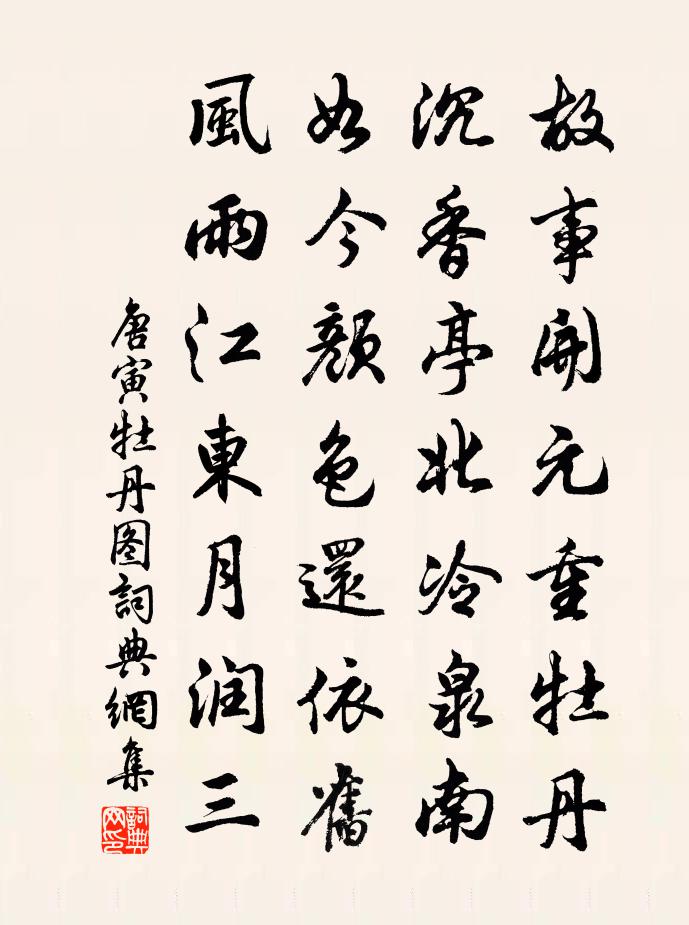 故事開元重牡丹
沉香亭北冷泉南
如今顏色還依舊
風雨江東月润三
唐寅牡丹图詞典網集
詞典网印